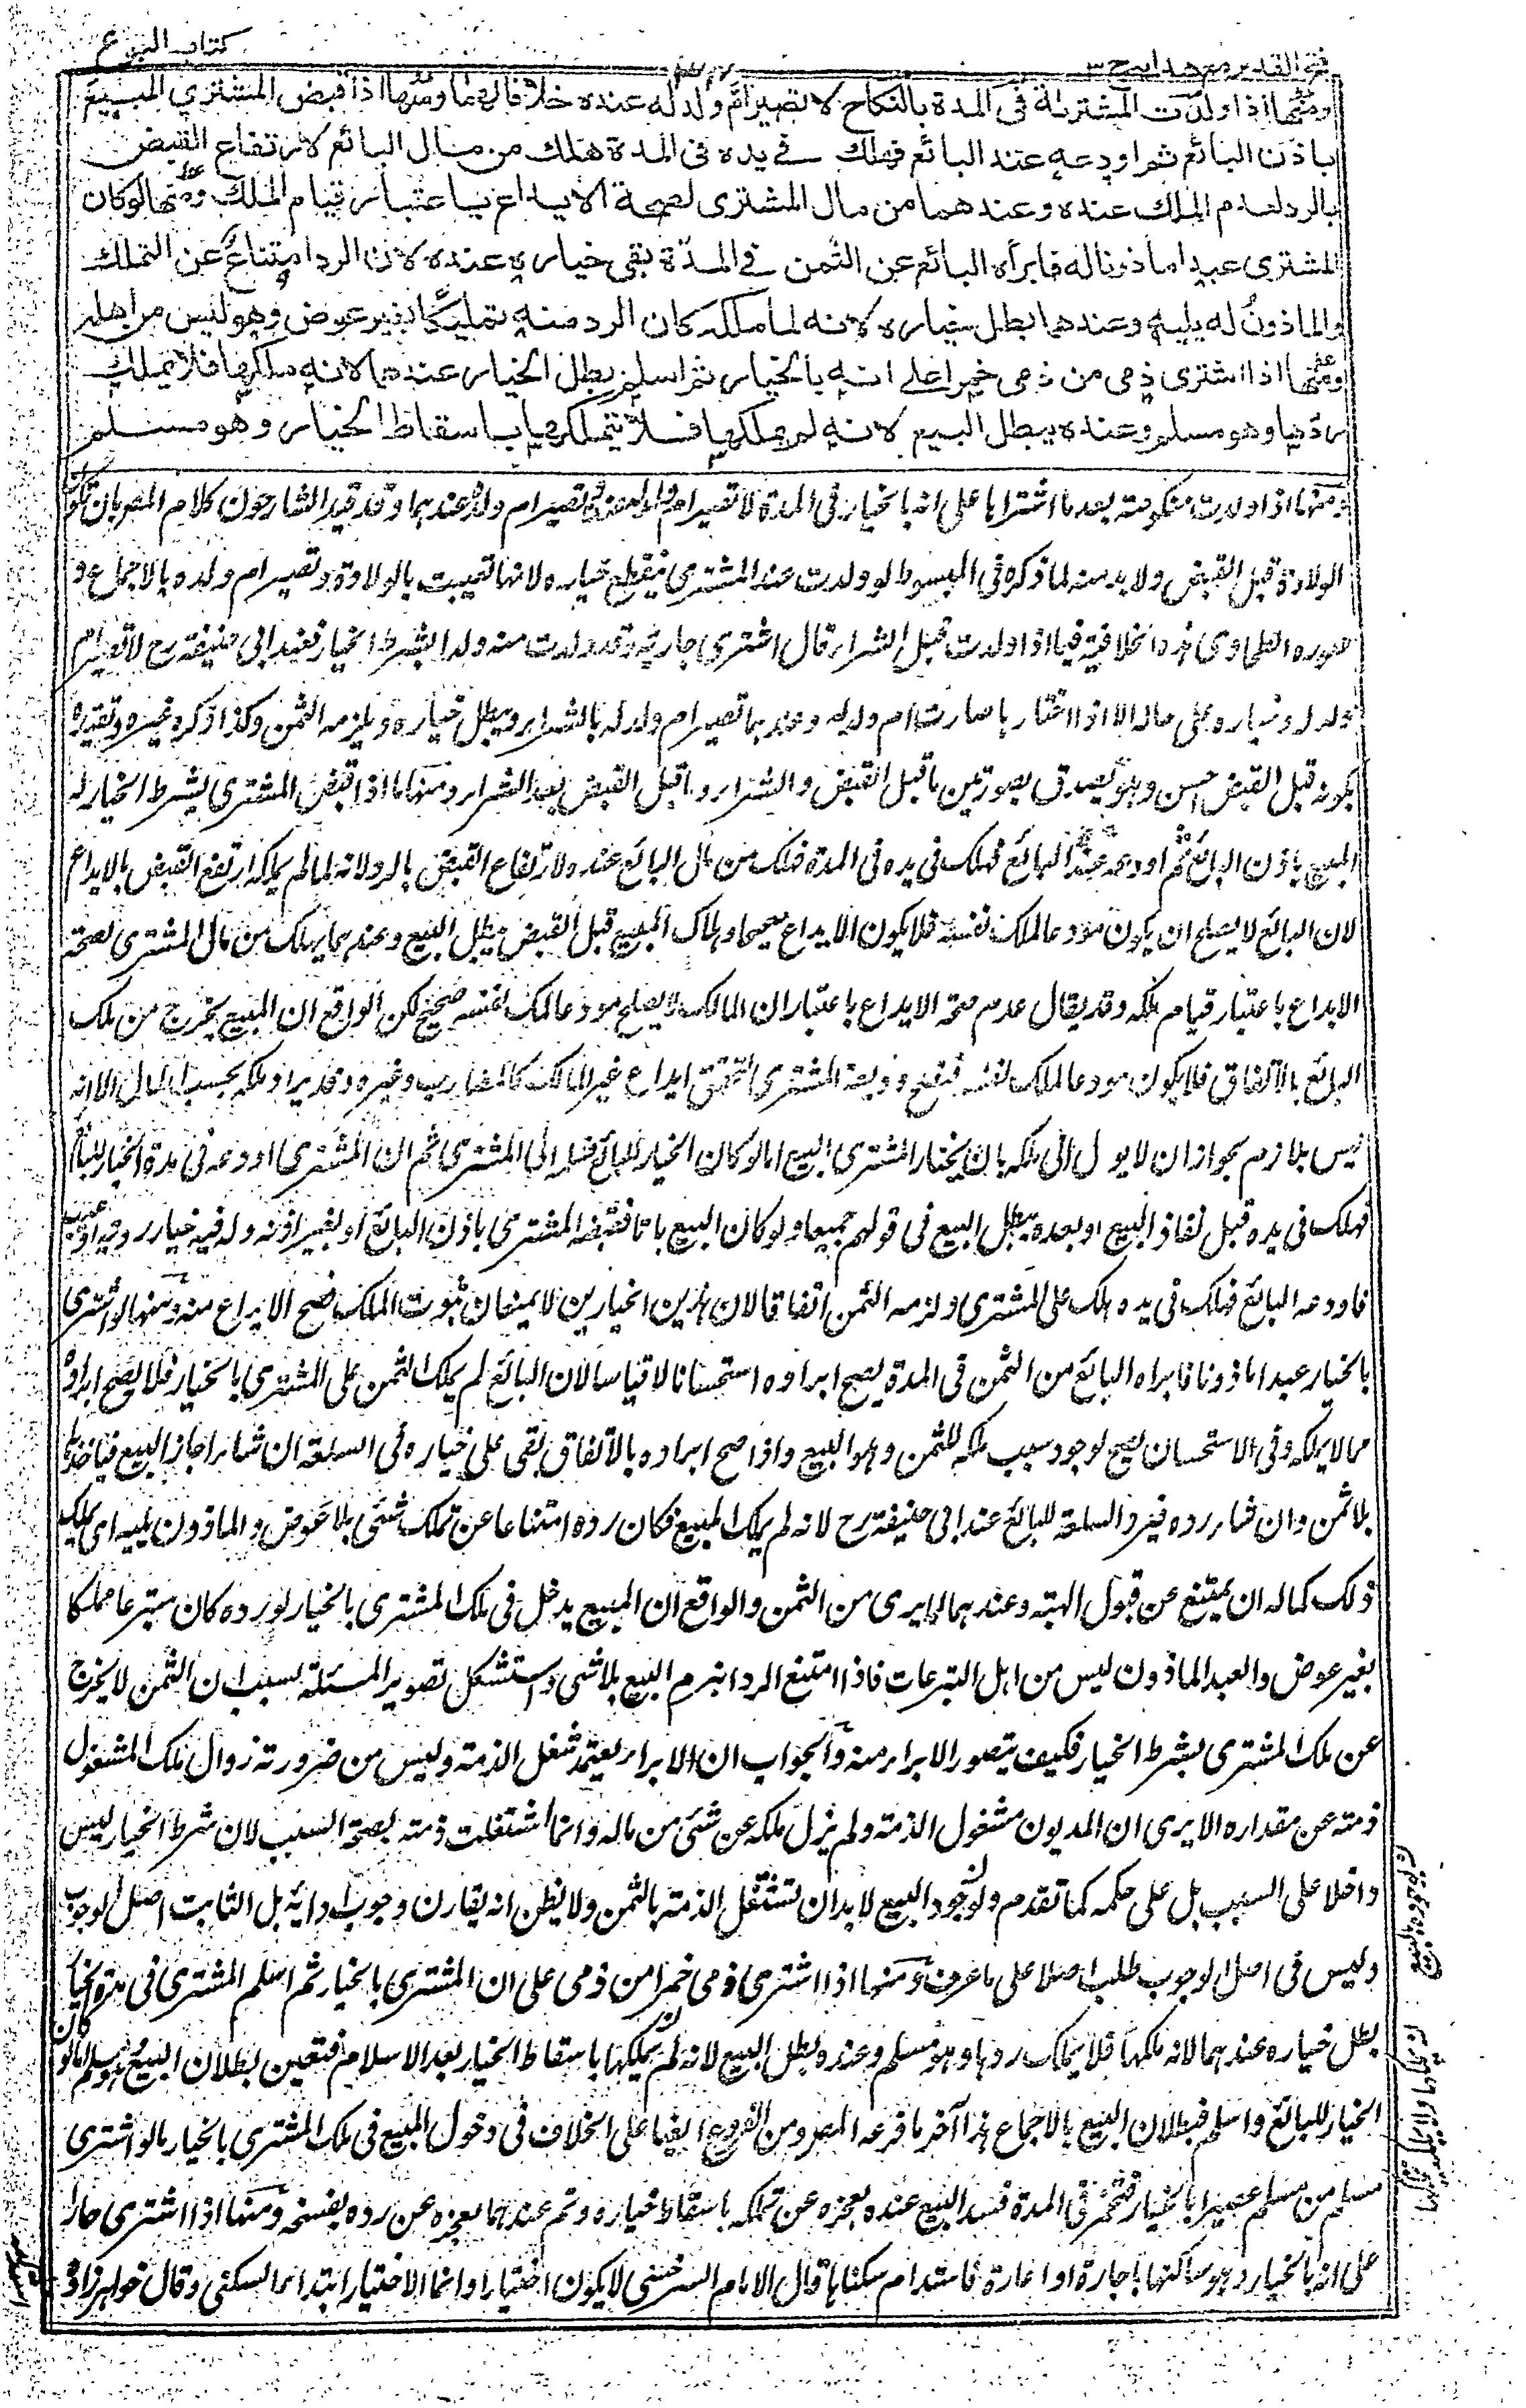 فتح القدير مع هدايه ج ٣
كتاب البيوع
ومنها اذا ولدت المشتراة فى المدة بالنكاح لا تصير ام ولد له عنده خلافا لهما ومنها اذا قبض المشتري المبيع
باذن البائع ثم اودعه عند البائع فهلك في يده فى المدة هلك من مال البائع لارتفاع القبض
بالرد لعدم الملك عنده وعندهما من مال المشترى لصحة الايداع باعتبار قيام الملك ومنها لو كان
المشترى عبدا ماذونا له فابرأه البائع عن الثمن في المدة بقى خياره عنده لان الرد امتناع عن التملك
والماذون له يليه وعندهما بطل خياره لانه لما ملكه كان الرد منه تمليكا بغير عوض وهو ليس من اهله
ومنها اذا اشترى ذمى من ذمى خمرا على انه بالخيار ثم اسلم بطل الخيار عندهما لانه ملكها فلا يملك
ردها وهو مسلم وعنده يبطل البيع لانه لم يملكها فلا يتملكها باسقاط الخيار وهو مسلم
ومنها اذا ولدت منكوحته بعد ما اشتراها على انه بالخيار فى المدة لا تصير ام ولد له عنده وتصير ام ولد له عندهما وقد قيد الشارحون كلام المص بان تكون
الولادة قبل القبض ولا بد منه لما ذكره فى المبسوط لو ولدت عند المشترى ينقطع خياره لانها تعيبت بالولادة وتصير ام ولده بالاجماع و
صوره الطحاوى هذه الخلافية فيما اذا ولدت قبل الشراء قال اشترى جارية وقد ولدت منه ولدا بشرط الخيار فعند ابى حنيفة رح لا تصير ام
ولد له وخياره على حاله الا اذا اختارها صارت ام ولد له وعندهما تصير ام ولد له بالشراء ويبطل خياره ويلزمه الثمن وكذا ذكره غيره وتقييده
بكونه قبل القبض احسن وهو يصدق بصورتين ما قبل القبض والشراء وما قبل القبض بعد الشراء ومنها ما اذا قبض المشترى بشرط الخيار له
المبيع باذن البائع ثم اودعه عند البائع فهلك فى يده فى المدة فهلك من مال البائع عنده لارتفاع القبض بالرد لانه لما لم يملكه ارتفع القبض بالايداع
لان البائع لا يصلح ان يكون مودعا لملك نفسه فلا يكون الايداع صحيحا وهلاك المبيع قبل القبض يبطل البيع وعندهما يهلك من مال المشترى لصحة
الايداع باعتبار قيام ملكه وقد يقال عدم صحة الايداع باعتبار ان المالك لا يصلح مودعا لملك نفسه صحيح لكن الواقع ان المبيع يخرج من ملك
البائع بالاتفاق فلا يكون مودعا لملك نفسه فيصح وديعة المشترى لتحقق ايداع غير المالك كالمضارب وغيره وقد يراد ملكه بحسب المآل الا انه
ليس بلازم لجواز ان لا يول الى ملكه بان يختار المشترى البيع اما لو كان الخيار للبائع فسلمه الى المشترى ثم ان المشترى اودعه فى مدة الخيار للبائع
فهلك فى يده قبل نفاذ البيع او بعده يبطل البيع فى قولهم جميعا ولو كان البيع باتا فقبضه المشترى باذن البائع او بغير اذنه وله فيه خيار رؤية او عيب
فاودعه البائع فهلك فى يده هلك على المشترى ولزمه الثمن اتفاقا لان هذين الخيارين لا يمنعان ثبوت الملك فصح الايداع منه ومنها لو اشترى
بالخيار عبدا ماذونا فابراه البائع من الثمن فى المدة يصح ابراوه استحسانا لا قياسا لان البائع لم يملك الثمن على المشترى بالخيار فلا يصح ابراوه
مما لا يملكه وفى الاستحسان يصح لوجود سبب ملكه للثمن وهو البيع واذا صح ابراوه بالاتفاق بقى على خياره فى السلعة ان شاء اجاز البيع فياخذها
بلا ثمن وان شاء رده فيرد السلعة للبائع عند ابى حنيفة رح لانه لم يملك المبيع فكان رده امتناعا عن تملك شئى بلا عوض والماذون يليه اى يملك
ذلك كما له ان يمتنع عن قبول الهبة وعندهما لما برى من الثمن والواقع ان المبيع يدخل فى ملك المشترى بالخيار لو رده كان متبرعا مملكا
بغير عوض والعبد الماذون ليس من اهل التبرعات فاذا امتنع الرد انبرم البيع بلا شى واستشكل تصوير المسئلة بسبب ان الثمن لا يخرج
عن ملك المشترى بشرط الخيار فكيف يتصور الابراء منه والجواب ان الابراء يعتمد شغل الذمة وليس من ضرورته زوال ملك المشغول
ذمته عن مقداره الا يرى ان المديون مشغول الذمة ولم يزل ملكه عن شئى من ماله وانما اشتغلت ذمته لصحة السبب لان شرط الخيار ليس
داخلا على السبب بل على حكمه كما تقدم ولوجود البيع لا بد ان تشتغل الذمة بالثمن ولا يظن انه يقارن وجوب ادائه بل الثابت اصل الوجوب
وليس فى اصل الوجوب طلب اصلا على ما عرف ومنها اذا اشترى ذمى خمرا من ذمى على ان المشترى بالخيار ثم اسلم المشترى فى مدة الخيار
بطل خياره عندهما لانه ملكها فلا يملك ردها وهو مسلم وعنده بطل البيع لانه لم يملكها باسقاط الخيار بعد الاسلام فتعين بطلان البيع وهو مسلم اما لو كان
الخيار للبائع واسلم فبطلان البيع بالاجماع هذا آخر ما فرعه المص ومن الفروع ايضا على الخلاف فى دخول المبيع فى ملك المشترى بالخيار ما لو اشترى
مسلم من مسلم عصيرا بالخيار فتخمر فى المدة فسد البيع عنده لعجزه عن تملكه باسقاط خياره وتم عندهما لعجزه عن رده بفسخه ومنها اذا اشترى دارا
على انه بالخيار وهو ساكنها باجارة او اعارة فاستدام سكناها قال الامام السرخسى لا يكون اختيارا وانما الاختيار ابتداء السكنى وقال خواهرزاده